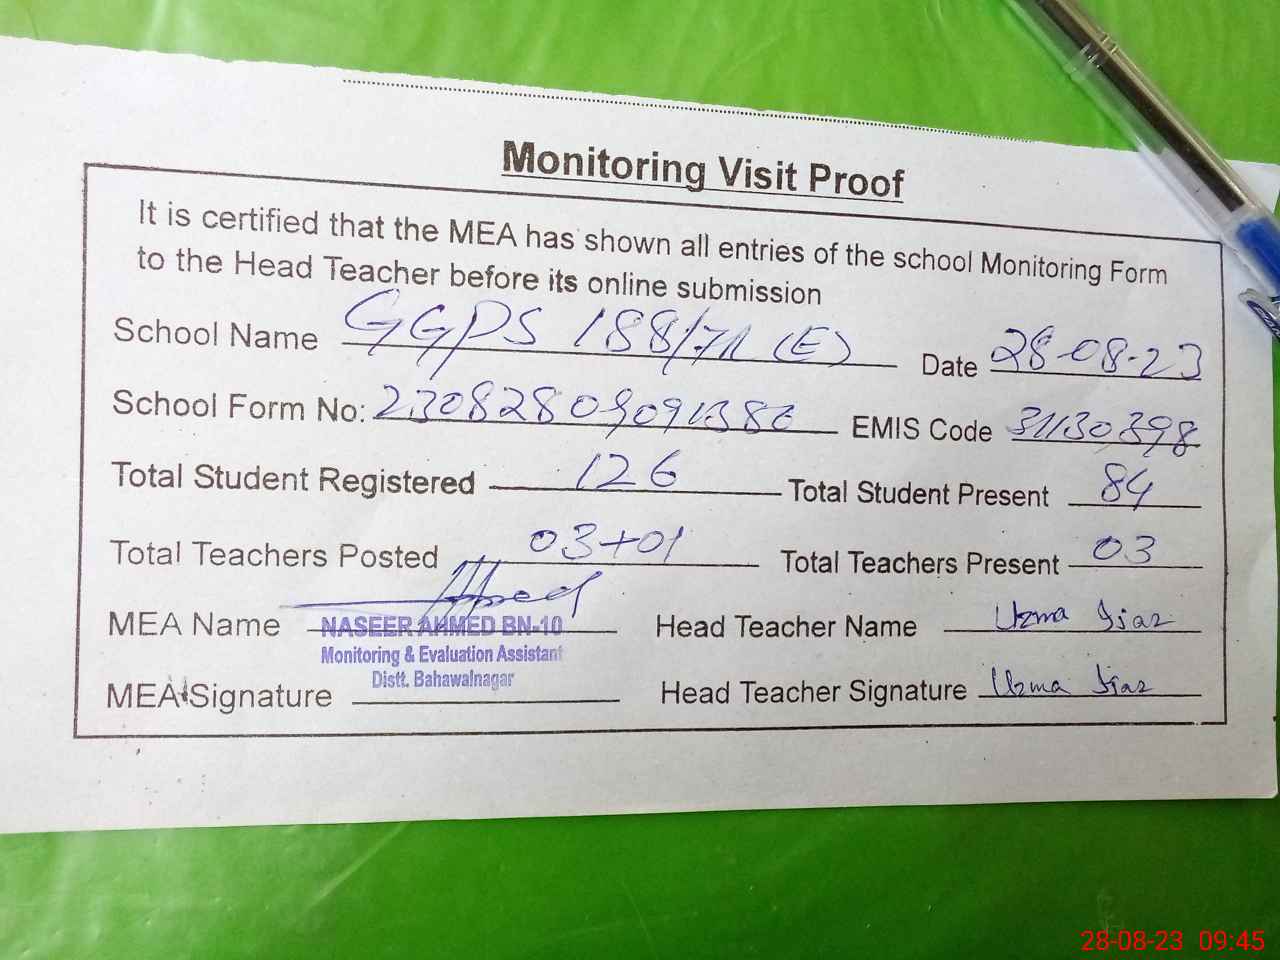 Monitoring Visit Proof
It is certified that the MEA has shown all entries of the school Monitoring Form
to the Head Teacher before its online submission
School Name GGPS 188/7R (E) Date 28-08-23
School Form No: EMIS Code 31130398
Total Student Registered 126 Total Student Present 84
Total Teachers Posted 03+01 Total Teachers Present 03
MEA Name NASEER AHMED BN-10 Head Teacher Name Uzma Ijaz
Monitoring & Evaluation Assistant
Distt. Bahawalnagar
MEA Signature Head Teacher Signature Uzma Ijaz
28-08-23 09:45